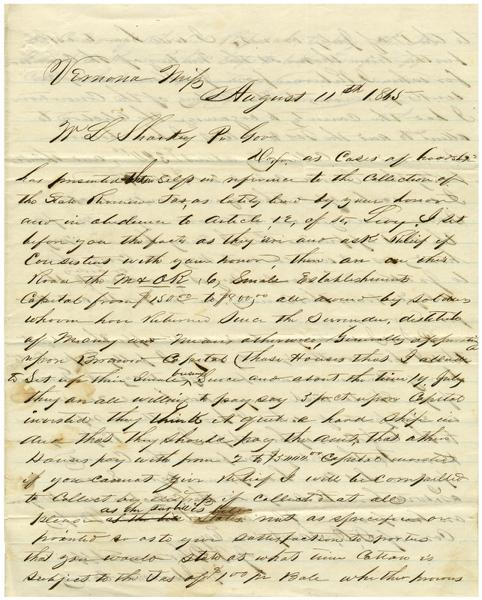 Verona Miss
August 11th 1865
W L Sharkey P. Gov
Dr Sir as Cases of hardship
has presented them selfs in reference to the Collection of
the State Revenue Tax, as lately laid by your honor
and in obedience to Article, 12, of Sd Levy, I set
before you the facts as they are and ask relief if
Consistent with your honor, there are on this
Road the M & O R R, 6, Small Establishments
Capital from $150.00 to $800.00 all owned by soldiers
whom have Returned Since the Surrender, destitute
of Money and Means otherwise, Generally
upon Borrowed Capital (these Houses that I allude
to Set up their Small business Since and about the time 1st July
they are all willing to pay say 3 pr ct upon Capital
invested they think it quite a hard Ship in
deed that they Should pay the Amt, that other
Houses pay with from 2 to $5000.00 Capital invested
if you cannot give relief I will be Compelled
to Collect by if collected at all
please State as Specific
pointed so as to give satisfaction to parties
that you would state at what time Cotton is
Subject to the Tax of $1.00 pr Bale whether previous